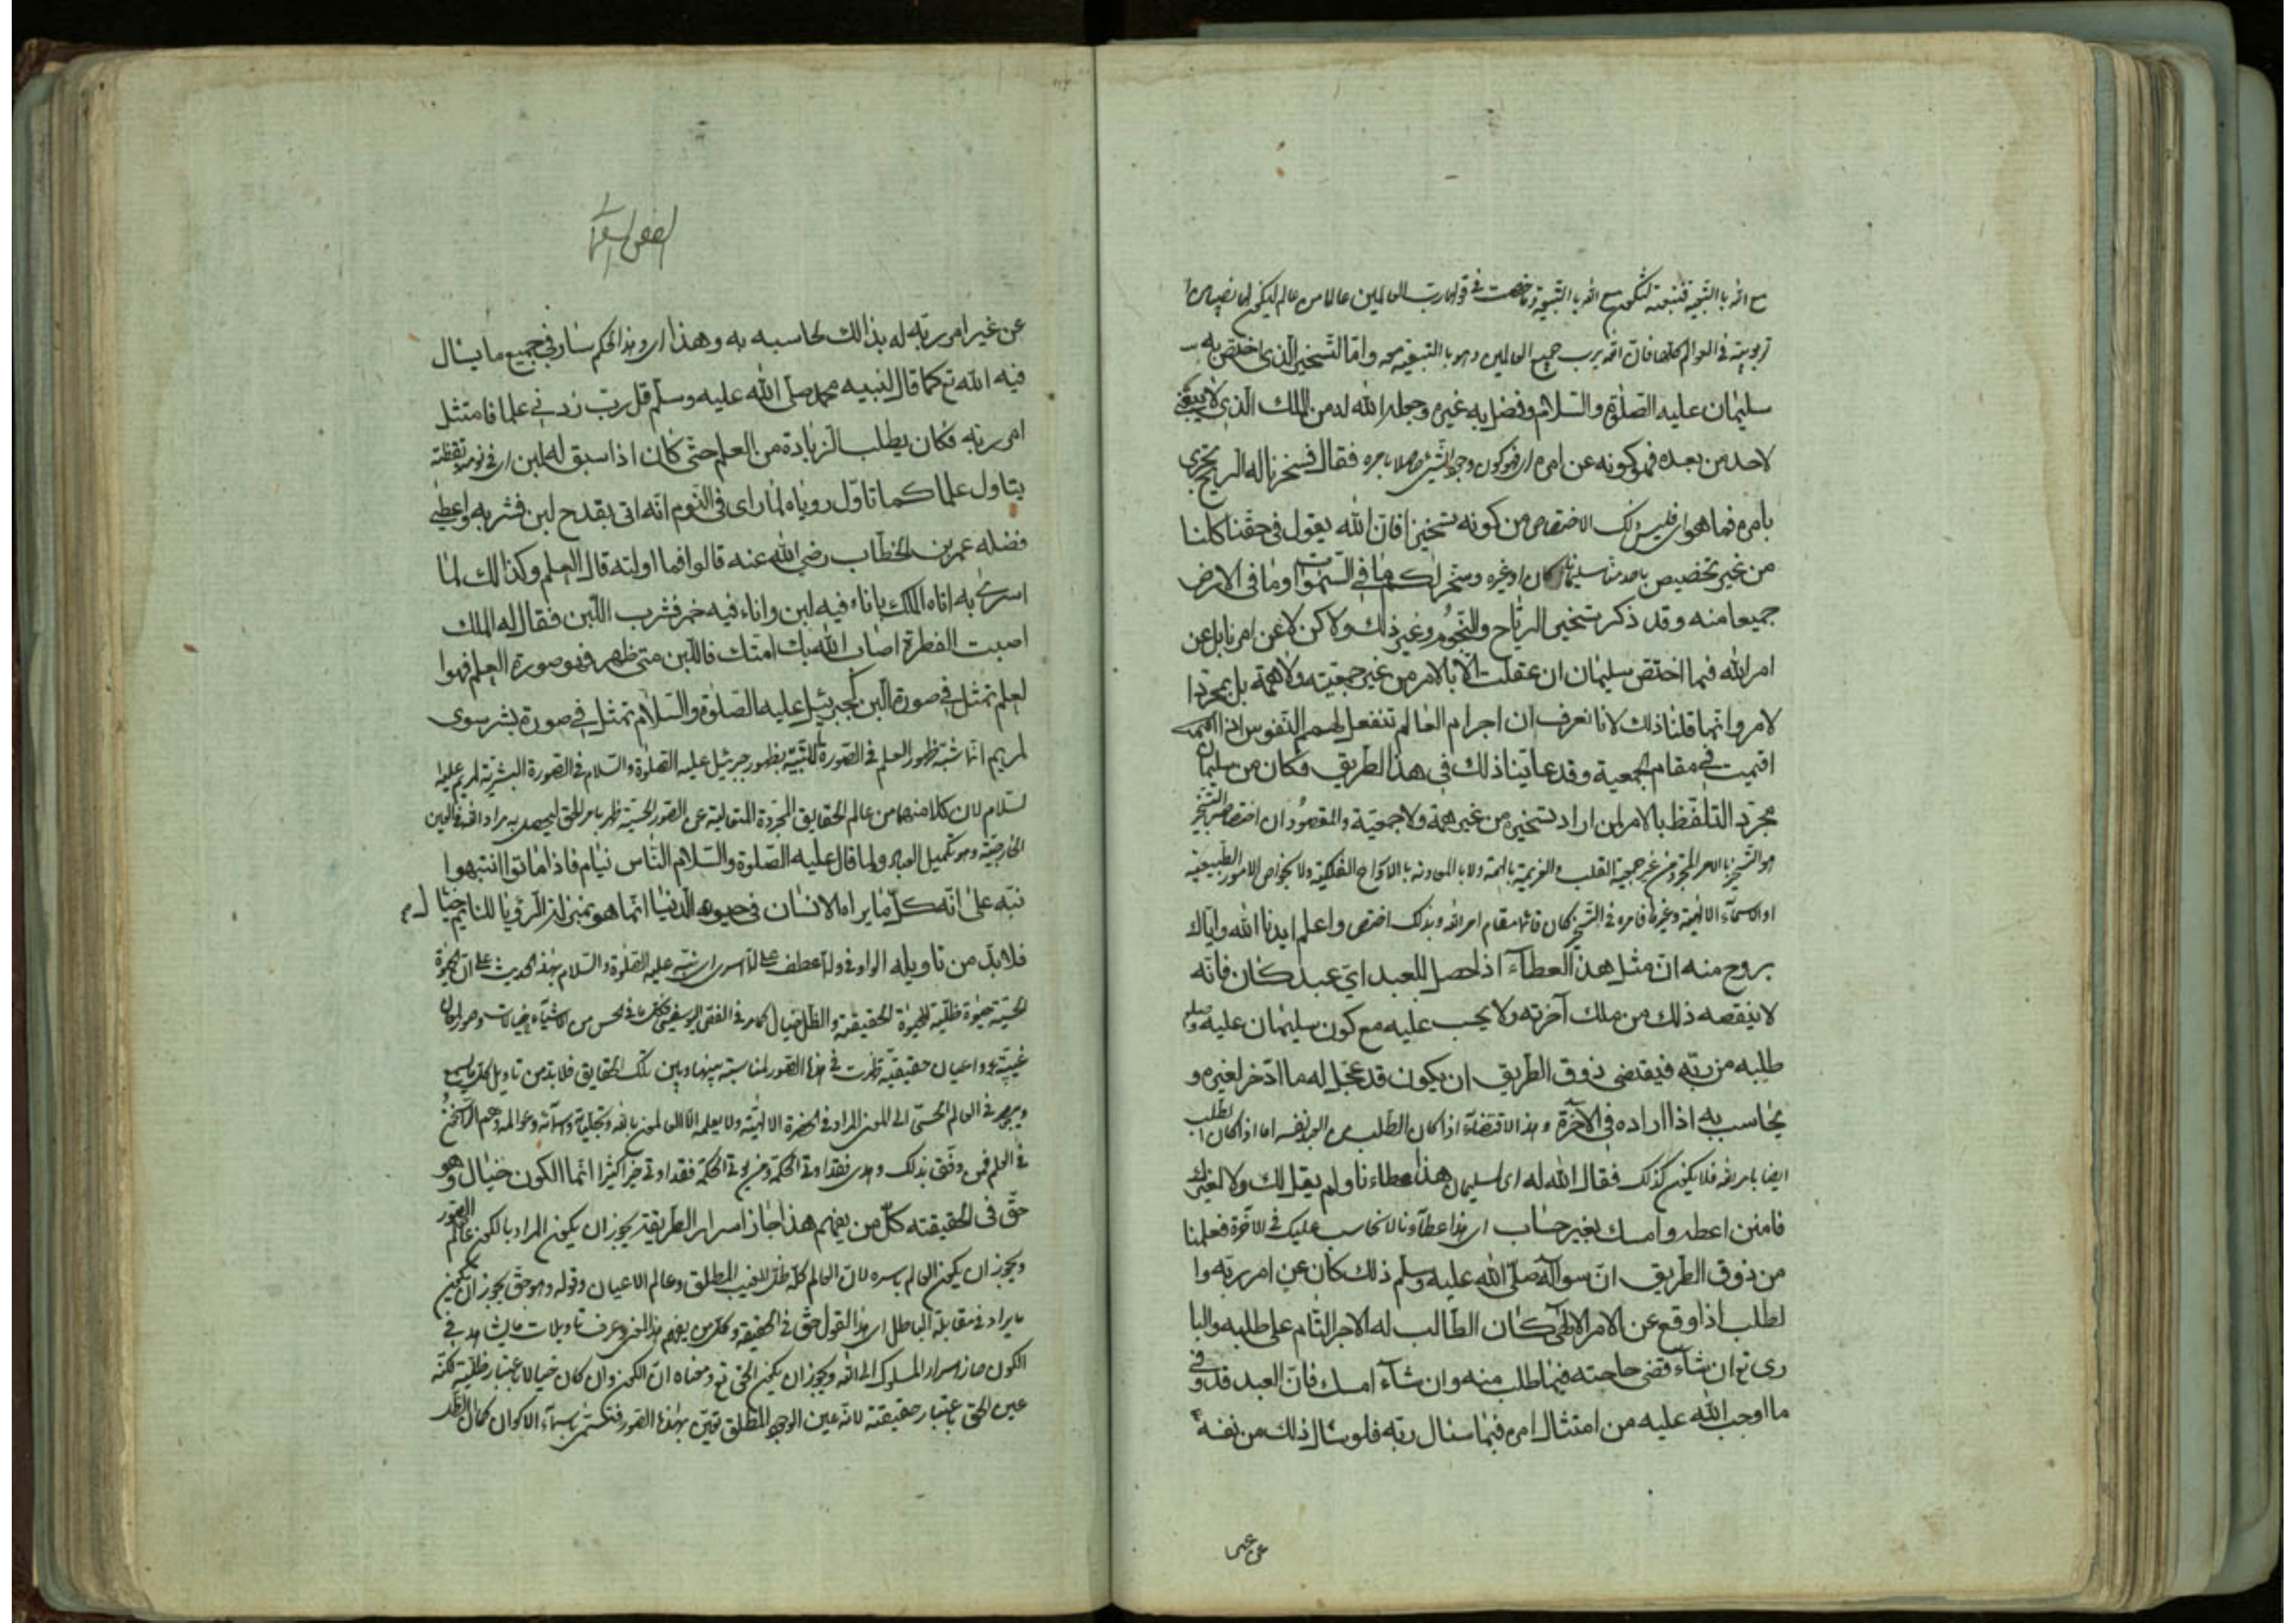 مع الله بالتبعية فنتيجته لتكون مع الله بالتبعية وما خصصت في قولها رب العالمين عالما من عالم ليكون
ربوبيته في العوالم كلها فان الله يرب جميع العالمين وهو بالتبعية معه واما التسخير الذي اختص به
سليمان عليه الصلوة والسلام وفضل به غيره وجعله الله له من الملك الذي لا ينبغي
لاحد من بعده فهو كونه عن امره اي فهو كون وجود الشيء حاصلا بامره فقال فسخرنا له الريح تجري
بامره فما هو اي فليس ذلك الاختصاص من كونه تسخيرا فان الله يقول في حقنا كلنا
من غير تخصيص باحد منا سليمان كان او غيره وسخر لكم ما في السموات وما في الارض
جميعا منه وقد ذكر تسخير الرياح والنجوم وغير ذلك ولاكن لا عن امرنا بل عن
امر الله فما اختص سليمان ان عقلت الا بالامر من غير جمعيته ولا همة بل بمجرد ا
لامر وانما قلنا ذلك لانا نعرف ان اجرام العالم تنفعل لهمم النفوس اذا
اقيمت في مقام الجمعية وقد عاينا ذلك في هذا الطريق فكان من سليمان
مجرد التلفظ بالامر لمن اراد تسخيره من غير همة ولا جمعية والمقصود ان اختصاص التسخير
هو التسخير بالامر المجرد من غير جمعية القلب والعزيمة بالهمة ولا بالمعاونة بالارواح الفلكية ولا بخواص الامور الطبيعية
او الاسمآء الالهية وغيرها فامره في التسخير كان قائما مقام امر الله وبذلك اختص واعلم ايدنا الله واياك
بروح منه ان مثل هذا العطآء اذا حصل للعبد اي عبد كان فانه
لا ينقصه ذلك من ملك آخرته ولا يحسب عليه مع كون سليمان عليه
طلبه من ربه فيقتضي ذوق الطريق ان يكون قد عجل له ما ادخر لغيره و
يحاسب به اذا اراده في الآخرة وهذا الاقتضاء اذا كان الطلب من العبد نفسه اما اذا كان الطلب
ايضا بامر الله فلا يكون كذلك فقال الله له اي لسليمان هذا عطاءنا ولم يقل لك ولا لغيرك
فامنن اعط او امسك بغير حساب اي هذا عطآؤنا لا نحاسب عليك في الآخرة فعلمنا
من ذوق الطريق ان سوآله صلى الله عليه وسلم ذلك كان عن امر ربه وا
لطلب اذا وقع عن الامر الالهي كان الطالب له الاجر التام على طلبه والبا
ري تع ان شآء قضى حاجته فيما طلب منه وان شآء امسك فان العبد قد وفى
ما اوجب الله عليه من امتثال امره فيما سئال ربه فلو سئال ذلك من نفسه
عن غير
عن غير امر ربه له بذالك لحاسبه به وهذا اي وهذا الحكم سار في جميع ما يسال
فيه الله تع كما قال لنبيه محمد صلى الله عليه وسلم قل رب زدني علما فامتثل
امر ربه فكان يطلب الزيادة من العلم حتى كان اذا سبق له لبن اي في نومه او يقظته
يتاول علما كما تاول روياه لما راى في النوم انه اتى بقدح لبن فشربه واعطى
فضله عمر بن الخطاب رضي الله عنه قالوا فما اولته قال العلم وكذالك لما
اسرى به اتاه الملك باناء فيه لبن واناء فيه خمر فشرب اللبن فقال له الملك
اصبت الفطرة اصاب الله بك امتك فاللبن متى ظهر فهو صورة العلم فهو ا
لعلم تمثل في صورة البن كجبرئيل عليه الصلوة والسلام تمثل في صورة بشر سوى
لمريم انما شبه ظهور العلم في الصورة اللبنية بظهور جبرئيل عليه الصلوة والسلام في الصورة البشرية لمريم عليها
لسلام لان كلا منهما من عالم الحقايق المجردة المتعالية عن الصور الحسية ظهر بامر الحق ليحصل به مراد الله في العين
الخارجية وهو تكميل العباد ولما قال عليه الصلوة والسلام الناس نيام فاذا ماتوا انتبهوا
نبه على انه كل ما يراه الانسان في حيوه الدنيا انما هو بمنزلة الرؤيا للنائم خيال
فلا بد من تاويله الواو في ولما عطف على لما اسرى اي نبه عليه الصلوة والسلام بهذا الحديث على ان الحيوة
الحسية حيوة ظلية للحيوة الحقيقية والظل خيال كما مر في الفص اليوسفي فكل ما في الحس من الاشيآء خيالات وصور لمعان
غيبية واعيان حقيقية ظهرت في هذه الصور لمناسبة بينها وبين تلك الحقايق فلا بد من تاويل كل ما يسمع
ويبصر في العالم الحسي الى المعنى المراد في الحضرة الالهية ولا يعلمه الا العالمون بالله وتجلياته واسمآئه وعوالمه وهم الراسخون
في العلم فمن وفق بذلك وهدى فقد اوتي الحكمة ومن يوتى الحكمة فقد اوتي خيرا كثيرا انما الكون خيال وهو
حق في الحقيقته كل من يفهم هذا حاز اسرار الطريقة يجوز ان يكون المراد بالكون عالم الصور
ويجوز ان يكون العالم باسره لان العالم كله ظل للغيب المطلق وعالم الاعيان وقوله وهو حق يجوز ان يكون
ما يراد في مقابلة الباطل اي هذا القول حق في الحقيقة وكل من يفهم هذا المعنى وعرف تاويلات ما يشاهد في
الكون حاز اسرار السلوك الى الله ويجوز ان يكون الحق تع ومعناه ان الكون وان كان خيالا باعتبار ظليته لكنه
عين الحق باعتبار حقيقته لانه عين الوجود المطلق تعين بهذه الصور فتسمى باسمآء الاكوان كما ان الظل